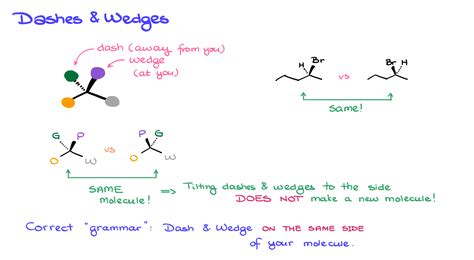 Dashes & Wedges
dash (away from you)
wedge
(at you)
H Br vs Br H
Same!
G P vs P G
O W O W
SAME
molecule!
⇒ Tilting dashes & wedges to the side
DOES NOT make a new molecule!
Correct "grammar": Dash & Wedge ON THE SAME SIDE
of your molecule.